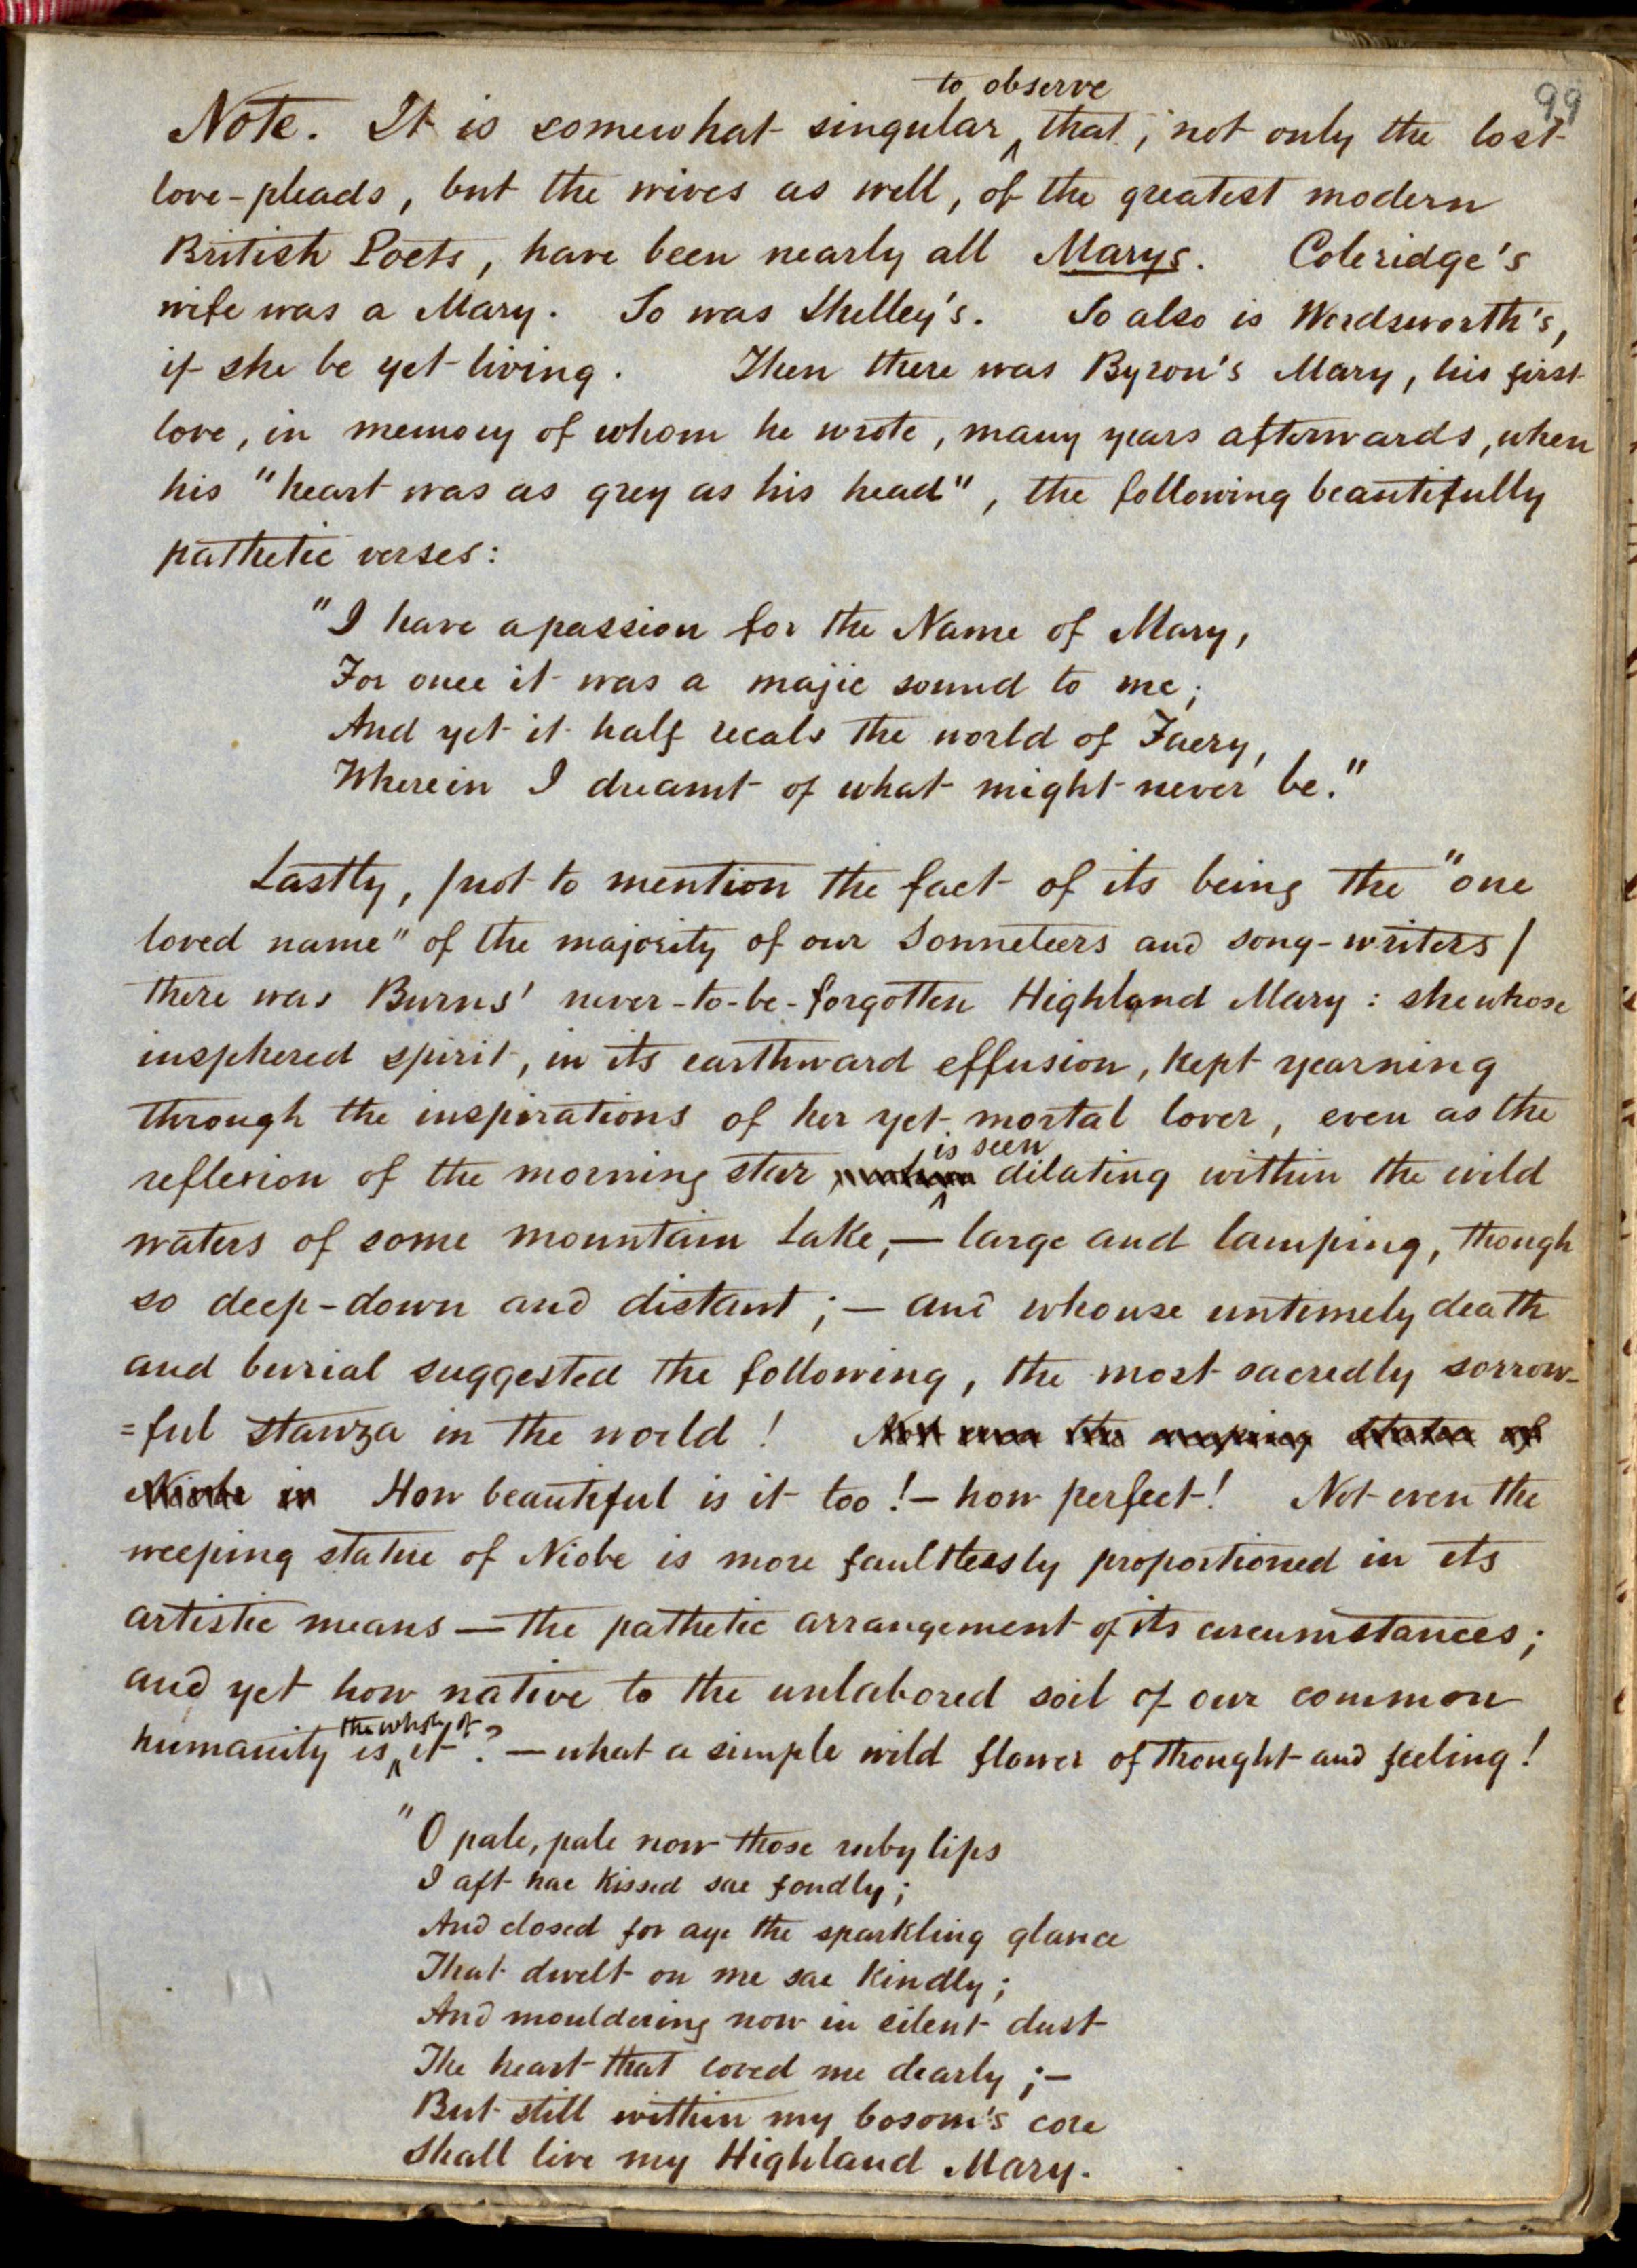 99
to observe
Note. It is somewhat singular ^ that, not only the lost
love-pleads, but the wives as well, of the greatest modern
British Poets, have been nearly all Marys. Coleridge's
wife was a Mary. So was Shelley's. So also is Wordsworth's,
if she be yet living. Then there was Byron's Mary, his first
love, in memory of whom he wrote, many years afterwards, when
his "heart was as grey as his head", the following beautifully
pathetic verses:
"I have a passion for the Name of Mary,
For once it was a majic sound to me;
And yet it half recals the world of Faery,
Wherein I dreamt of what might never be."
Lastly, /not to mention the fact of its being the "one
loved name" of the majority of our Sonneteers and song-writers/
there was Burns' never-to-be-forgotten Highland Mary: she whose
insphered spirit, in its earthward effusion, kept yearning
through the inspirations of her yet mortal lover, even as the
is seen
reflexion of the morning star ^ dilating within the wild
waters of some mountain Lake,— large and lamping, though
so deep-down and distant;— and whouse untimely death
and burial suggested the following, the most sacredly sorrow-
=ful stanza in the world! Not even the weeping statue of
Niobe is How beautiful is it too!— how perfect! Not even the
weeping statue of Niobe is more faultlessly proportioned in its
artistic means — the pathetic arrangement of its circumstances;
and yet how native to the unlabored soil of our common
the whole of
humanity is ^ it? — what a simple wild flower of thought and feeling!
"O pale, pale now those ruby lips
I aft hae kissed sae fondly;
And closed for aye the sparkling glance
That dwelt on me sae kindly;
And mouldering now in silent dust
The heart that loved me dearly;—
But still within my bosom's core
Shall live my Highland Mary.